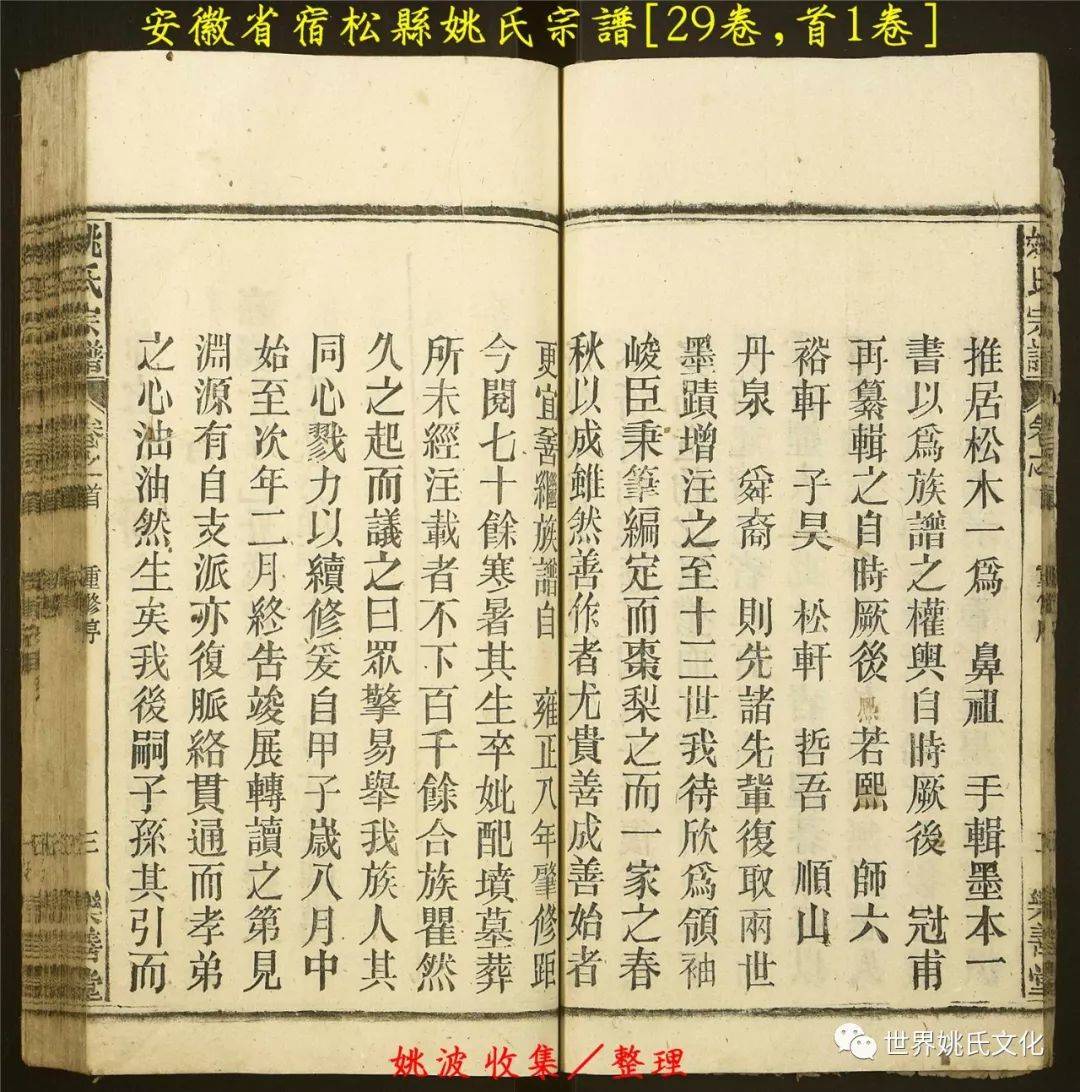 安徽省宿松縣姚氏宗譜[29卷,首1卷]
推居松木一爲 鼻祖 手輯墨本一
書以爲族譜之權輿自時厥後 冠甫
再纂輯之自時厥後熈若熙 師六
裕軒 子昊 松軒 哲吾 順山
丹泉 舜裔 則先諸先輩復取兩世
墨蹟增注之至十三世我待欣爲領袖
峻臣秉筆編定而棗梨之而一家之春
秋以成雖然善作者尤貴善成善始者
更宜善繼族譜自 雍正八年肇修距
今閱七十餘寒暑其生卒妣配墳墓葬
所未經注載者不下百千餘合族瞿然
久之起而議之曰眾擎易舉我族人其
同心戮力以續修爰自甲子歲八月中
始至次年二月終告竣展轉讀之第見
淵源有自支派亦復脈絡貫通而孝弟
之心油油然生矣我後嗣子孫其引而
姚氏宗譜 卷之首 重修序 三 樂善堂
姚波收集/整理
世界姚氏文化